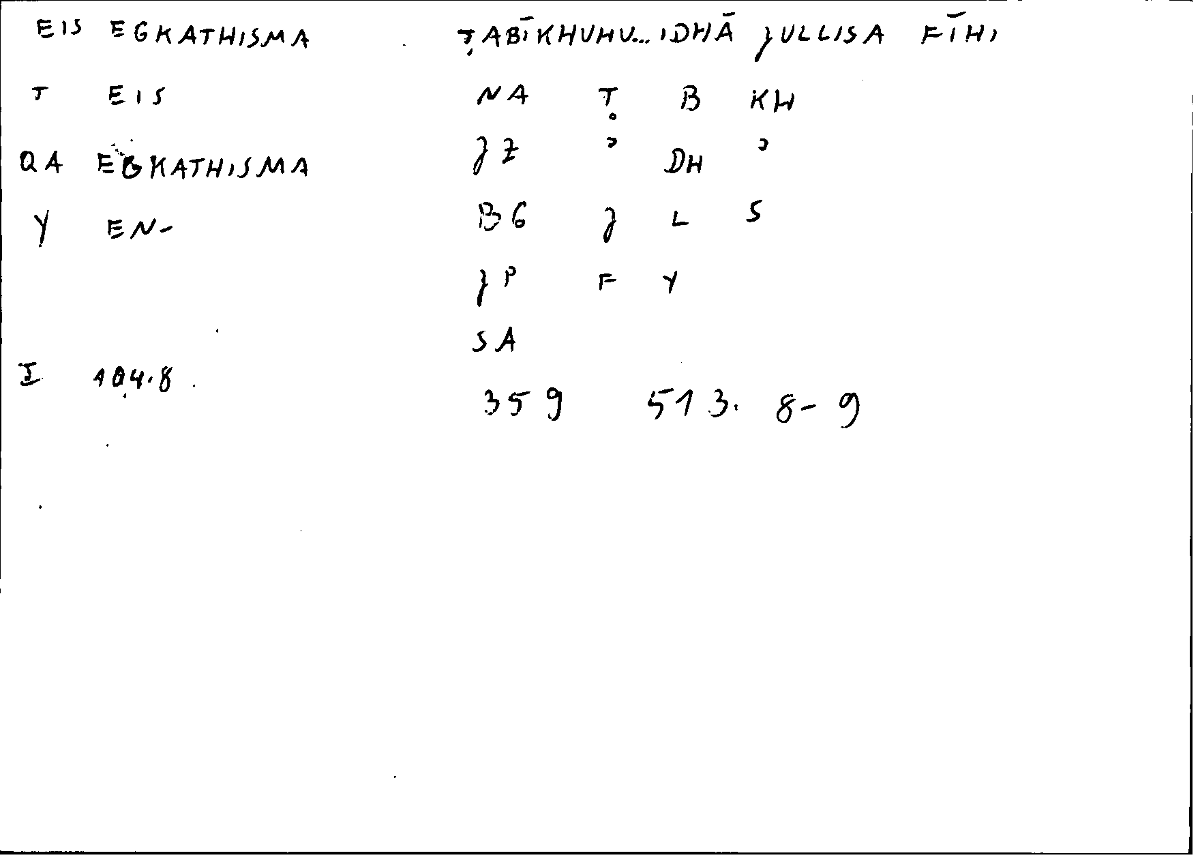 EIS EGKATHISMA ṬABĪKHUHU... IDHĀ JULLISA FĪHI
T EIS NA Ṭ B KH
QA EGKATHISMA JZ ʾ DH ʾ
Y EN- BG J L S
JP F Y
SA
I 104.8 359 513. 8-9